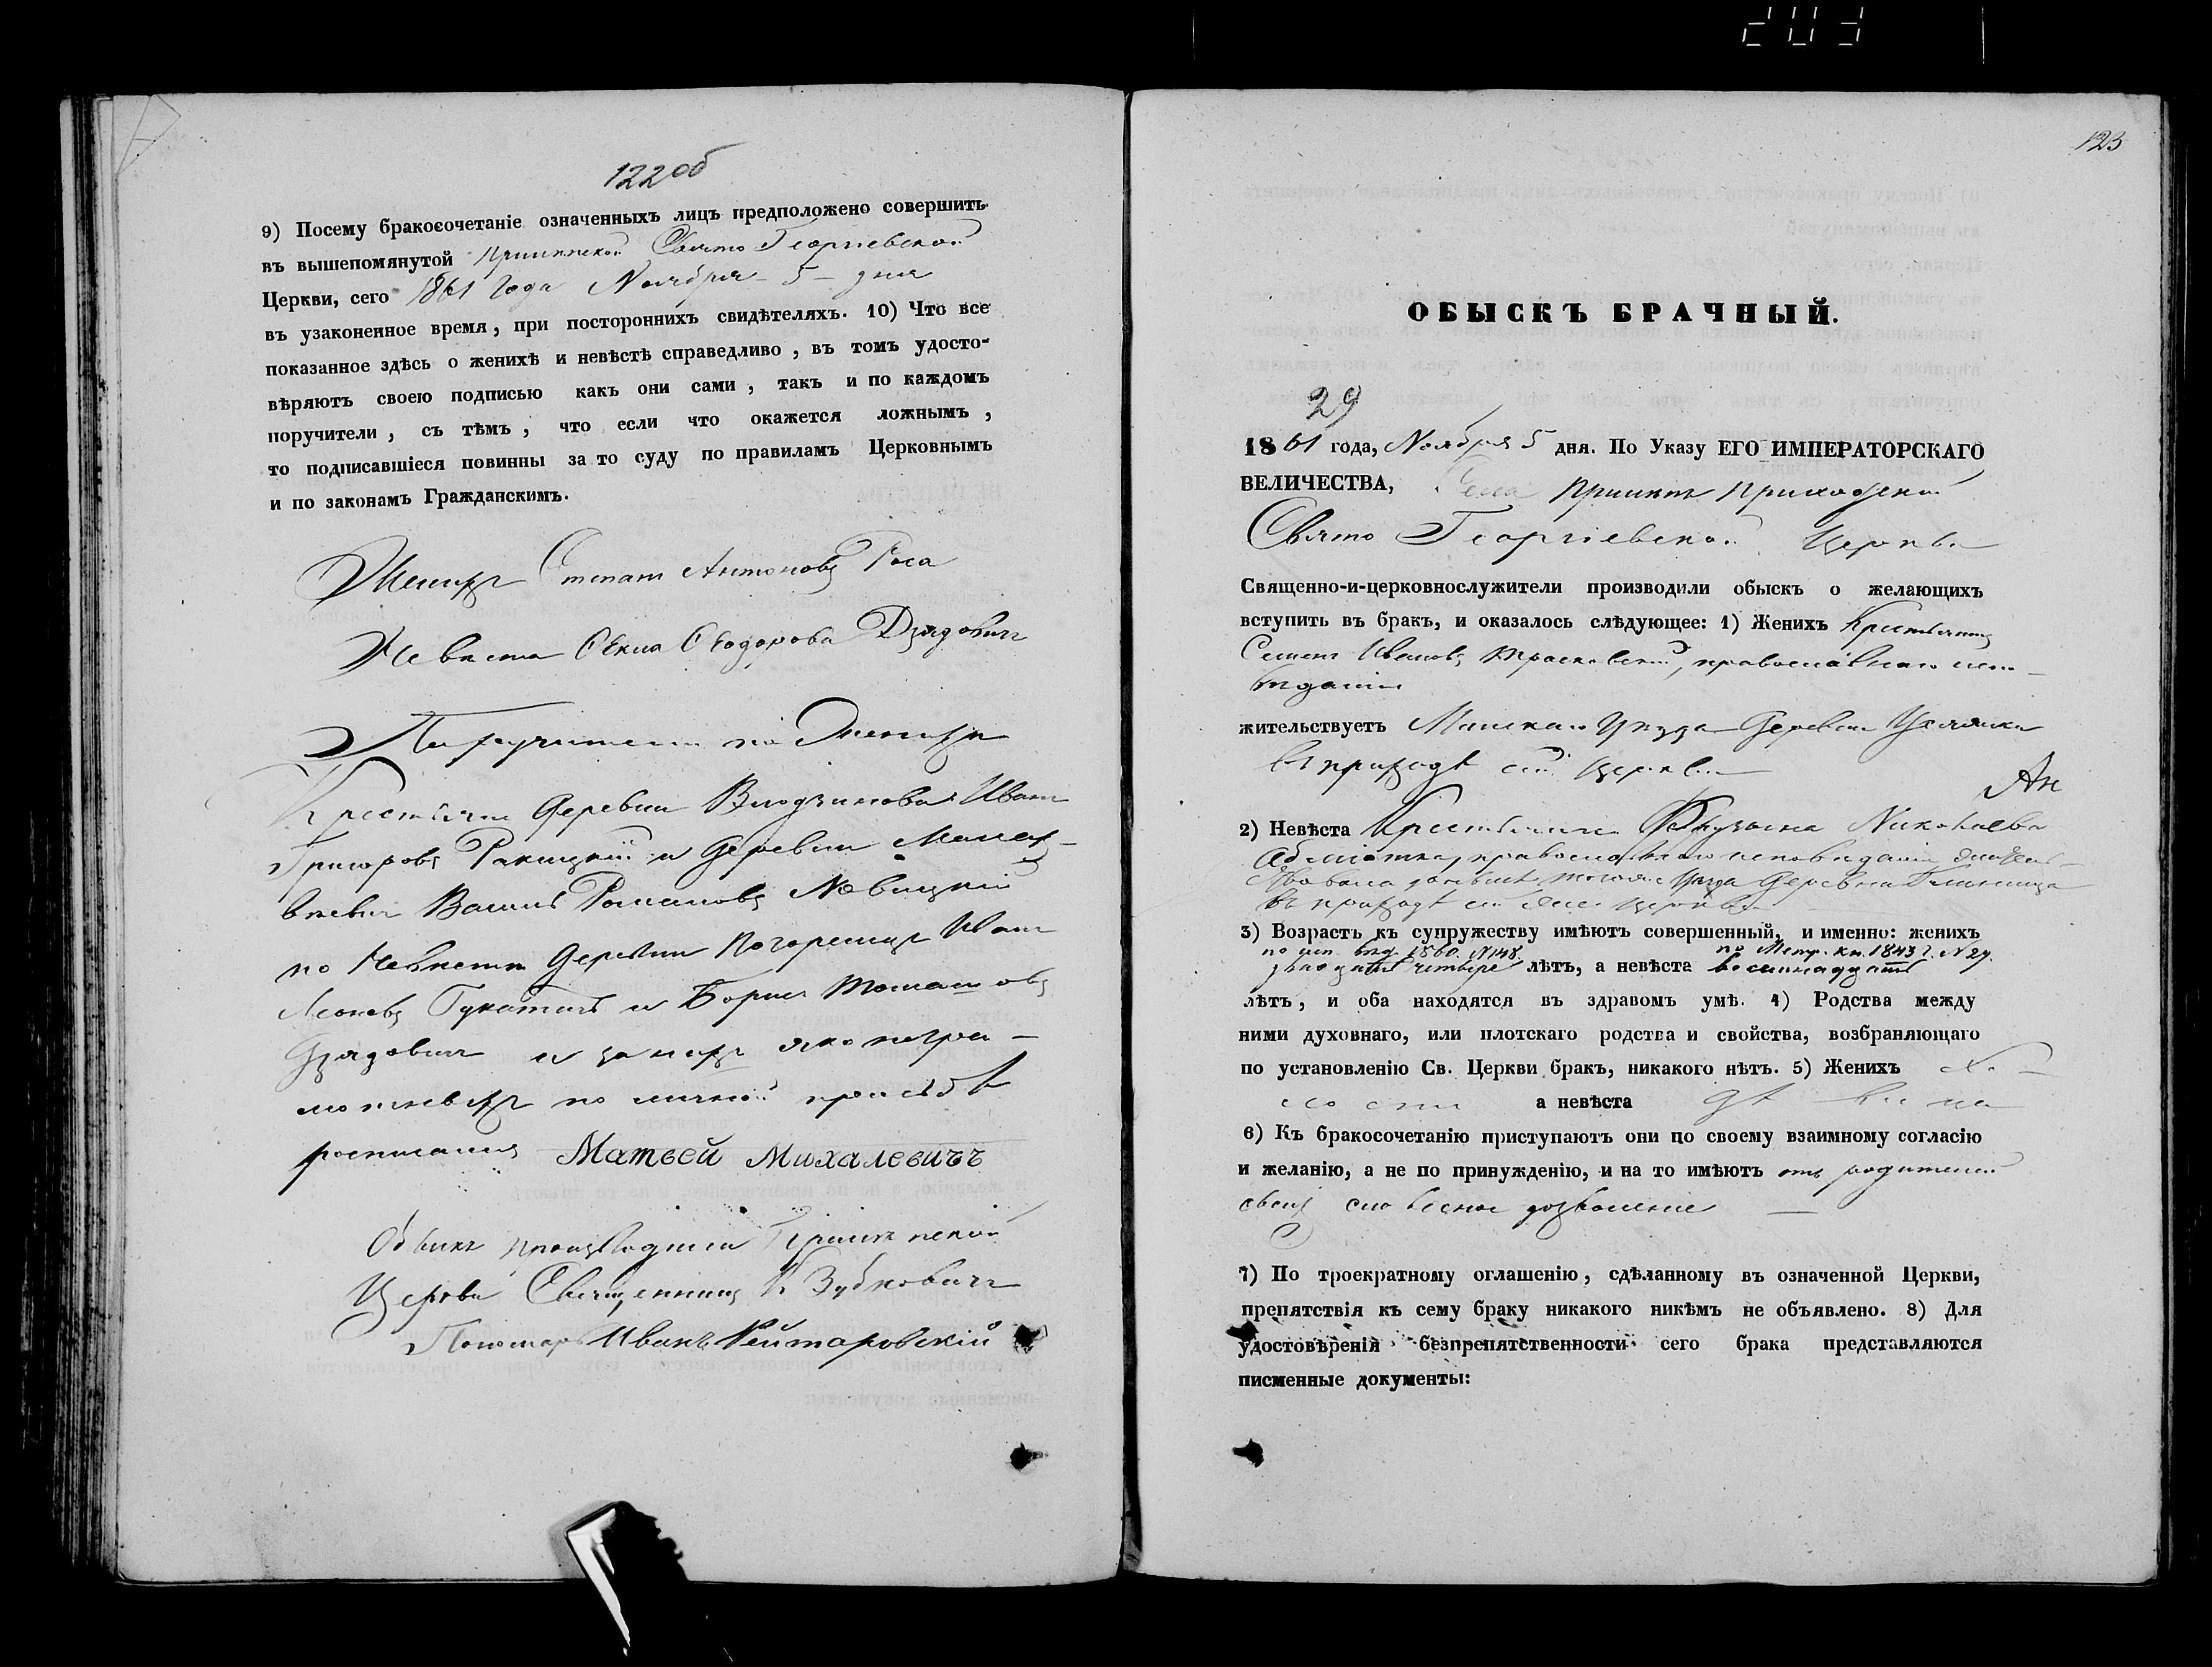 122 об
9) Посему бракосочетаніе означенныхъ лицъ предположено совершить
въ вышепомянутой Свято Георгіевской
Церкви, сего 1861 года Ноября 5 дня
въ узаконенное время, при постороннихъ свидѣтеляхъ. 10) Что все
показанное здѣсь о женихѣ и невѣстѣ справедливо, въ томъ удосто-
вѣряютъ своею подписью какъ они сами, такъ и по каждомъ
поручители, съ тѣмъ, что если что окажется ложнымъ,
то подписавшіеся повинны за то суду по правиламъ Церковнымъ
и по законамъ Гражданскимъ.
Женихъ Степанъ Антоновъ Роса
Невѣста Ѳекла Ѳеодорова Дзядовичъ
Поручители по Женихѣ
Крестьяне деревни Иванъ
Григоровъ Ракицкій и деревни
Василь Романовъ Новицкій
по Невѣстѣ деревни Погорельце Иванъ
и Борисъ Томашовъ
Дзядовичъ и за нихъ яко негра-
мотныхъ по личной прозьбѣ
росписался Матвей Михалевичъ
Обыскъ производили
Церкви Священникъ К Зубковичъ
Пономарь Иванъ Рейтаровскій
123
ОБЫСКЪ БРАЧНЫЙ.
29
1861 года, Ноября 5 дня. По Указу ЕГО ИМПЕРАТОРСКАГО
ВЕЛИЧЕСТВА, Села Приходской
Свято Георгіевской Церкви
Священно-и-церковнослужители производили обыскъ о желающихъ
вступить въ бракъ, и оказалось слѣдующее: 1) Женихъ Крестьянинъ
Семенъ Ивановъ православнаго испо-
вѣданія
жительствуетъ Минскаго Уѣзда Деревни
въ приходѣ сей Церкви
Ан
2) Невѣста Крестьянка Николаева
православнаго исповѣданія жительст-
вовала тогоже Уѣзда деревни
въ приходѣ сей же Церкви
3) Возрастъ къ супружеству имѣютъ совершенный, и именно: женихъ
по исп. вѣд. 1860. N 148. по Метр. кн. 1843 г. N 29.
двадцать четыре лѣтъ, а невѣста восимнадцать
лѣтъ, и оба находятся въ здравомъ умѣ. 4) Родства между
ними духовнаго, или плотскаго родства и свойства, возбраняющаго
по установленію Св. Церкви бракъ, никакого нѣтъ. 5) Женихъ хо-
лостъ а невѣста дѣвица
6) Къ бракосочетанію приступаютъ они по своему взаимному согласію
и желанію, а не по принужденію, и на то имѣютъ отъ родителей
своихъ словесное дозволеніе
7) По троекратному оглашенію, сдѣланному въ означенной Церкви,
препятствія къ сему браку никакого никѣмъ не объявлено. 8) Для
удостовѣренія безпрепятственности сего брака представляются
писменные документы: